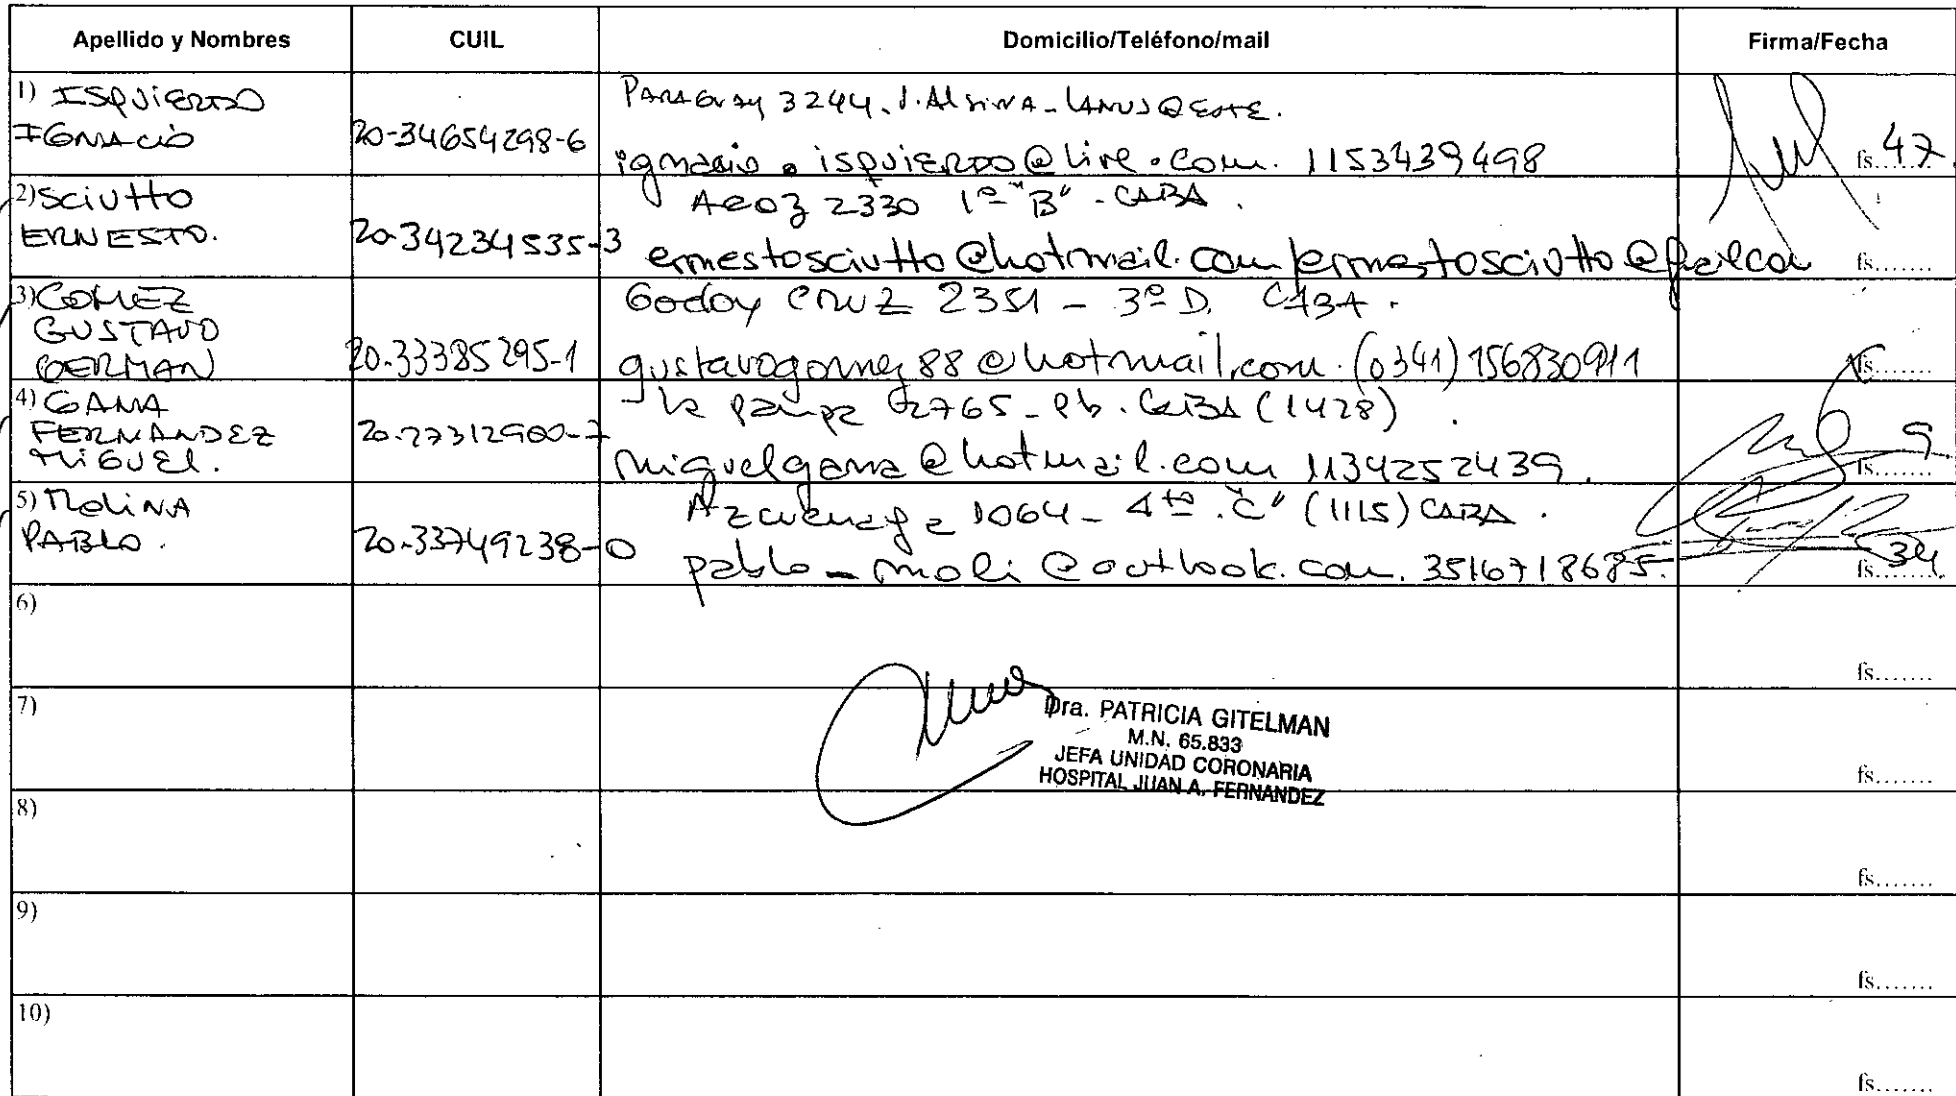 Apellido y Nombres CUIL Domicilio/Teléfono/mail Firma/Fecha
1) ISQUIERDO
IGNACIO
20-34654298-6
PARAGUAY 3244. V. ALSINA - LANUS OESTE.
ignacio.isquierdo@live.com. 1153439498
fs....... 47
2) SCIUTTO
ERNESTO.
20-34234535-3
2330 1º "B" - CABA.
ernestosciutto@hotmail.com
fs.......
3) GOMEZ
GUSTAVO
GERMAN
20.33385295-1
Godoy CRUZ 2351 - 3º D. CABA.
gustavogomez88@hotmail.com. (0341) 156830911
fs.......
4) GANA
FERNANDEZ
MIGUEL.
20-27312900-7
la pampa 2765 - Pb. CABA (1428).
miguelgana@hotmail.com 1134252439.
fs....... 9
5) MOLINA
PABLO.
20-33749238-0
Azcuenaga 1064 - 4to. "C" (1115) CABA.
pablo_moli@outlook.com. 3516718685.
fs....... 34
6)
fs.......
7)
Dra. PATRICIA GITELMAN
M.N. 65.833
JEFA UNIDAD CORONARIA
HOSPITAL JUAN A. FERNANDEZ
fs.......
8)
fs.......
9)
fs.......
10)
fs.......